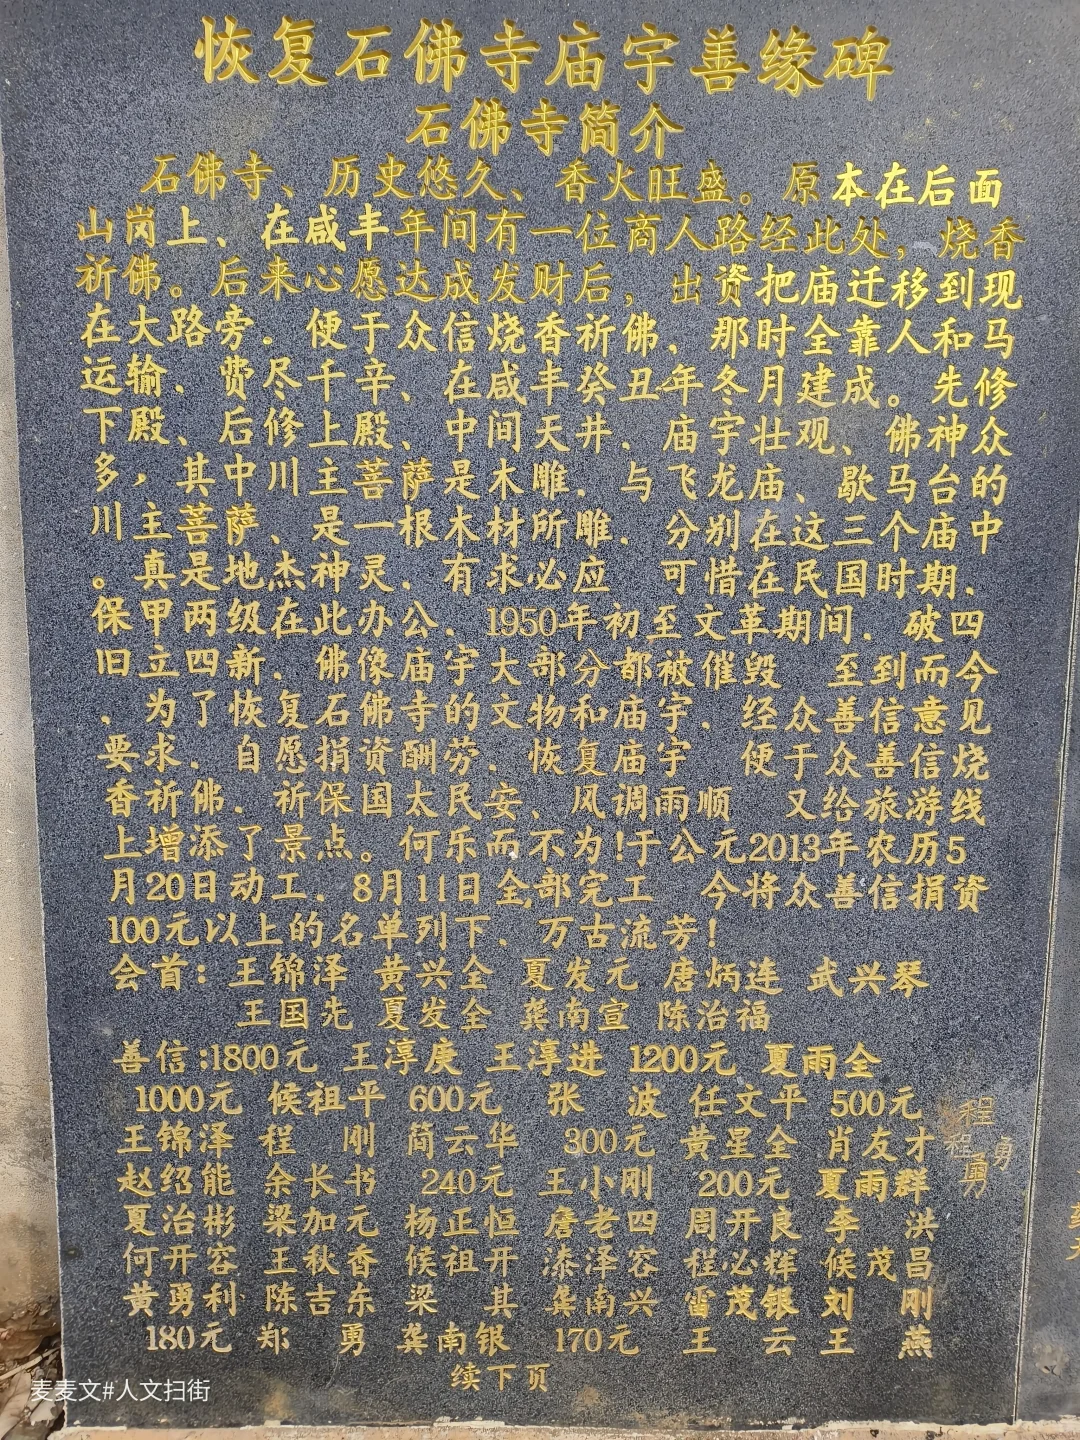 恢复石佛寺庙宇善缘碑
石佛寺简介
石佛寺、历史悠久、香火旺盛。原本在后面
山岗上、在咸丰年间有一位商人路经此处，烧香
祈佛。后来心愿达成发财后，出资把庙迁移到现
在大路旁。便于众信烧香祈佛、那时全靠人和马
运输、费尽千辛、在咸丰癸丑年冬月建成。先修
下殿、后修上殿、中间天井、庙宇壮观、佛神众
多，其中川主菩萨是木雕．与飞龙庙、歇马台的
川主菩萨、是一根木材所雕．分别在这三个庙中
。真是地杰神灵．有求必应 可惜在民国时期．
保甲两级在此办公．1950年初至文革期间．破四
旧立四新．佛像庙宇大部分都被催毁 至到而今
、为了恢复石佛寺的文物和庙宇．经众善信意见
要求．自愿捐资酬劳、恢复庙宇 便于众善信烧
香祈佛．祈保国太民安、风调雨顺 又给旅游线
上增添了景点。何乐而不为!于公元2013年农历5
月20日动工．8月11日全部完工 今将众善信捐资
100元以上的名单列下、万古流芳!
会首：王锦泽 黄兴全 夏发元 唐炳连 武兴琴
王国先 夏发全 龚南宣 陈治福
善信:1800元 王淳庚 王淳进 1200元 夏雨全
1000元 候祖平 600元 张 波 任文平 500元
王锦泽 程 刚 简云华 300元 黄星全 肖友才
程
程 勇
勇
赵绍能 余长书 240元 王小刚 200元 夏雨群
夏治彬 梁加元 杨正恒 唐老四 周开良 李 洪
何开容 王秋香 候祖开 漆泽容 程必辉 候茂昌
黄勇利 陈吉东 梁 其 龚南兴 雷茂银 刘 刚
180元 郑 勇 龚南银 170元 王 云 王 燕
续下页
麦麦文#人文扫街